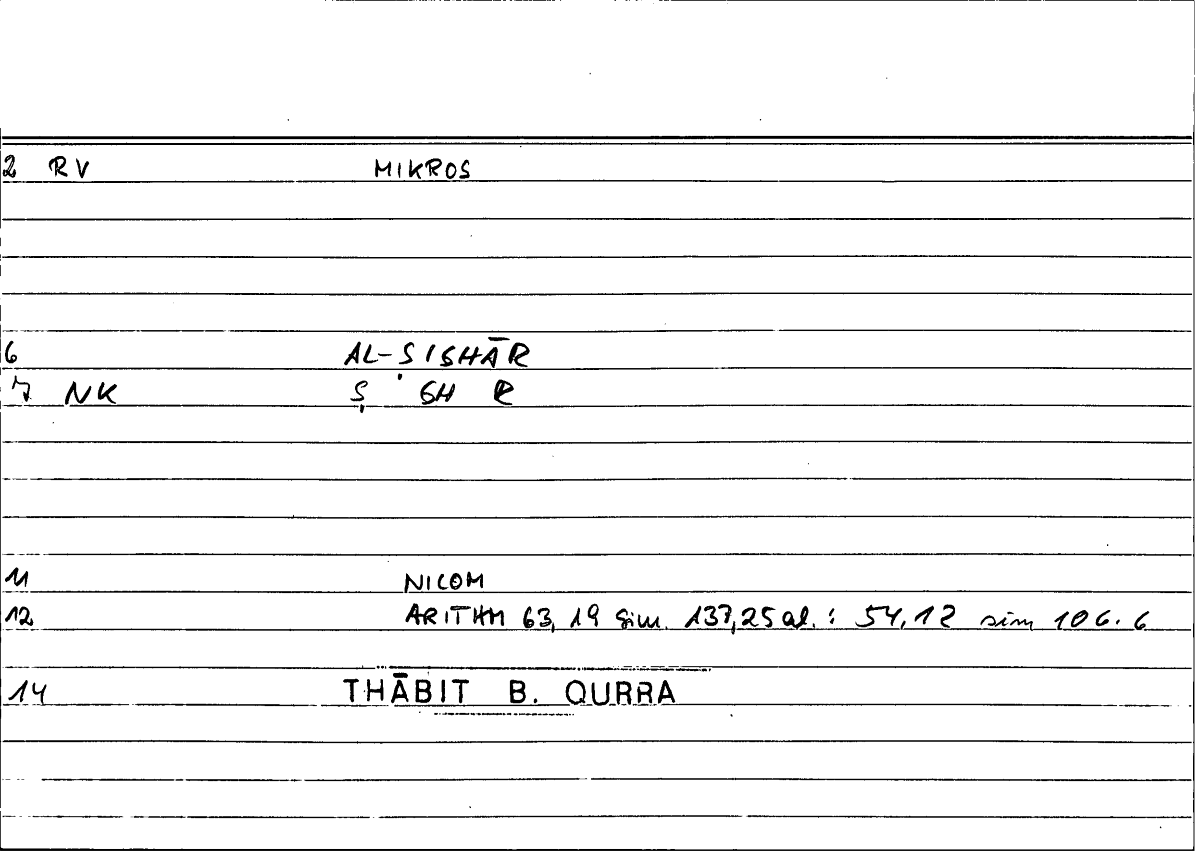 2 RV MIKROS
6 AL-ṢIGHĀR
7 NK Ṣ GH R
11 NICOM
12 ARITHM 63, 19 sim. 137,25 al. : 54,12 sim 106.6
14 THĀBIT B. QURRA